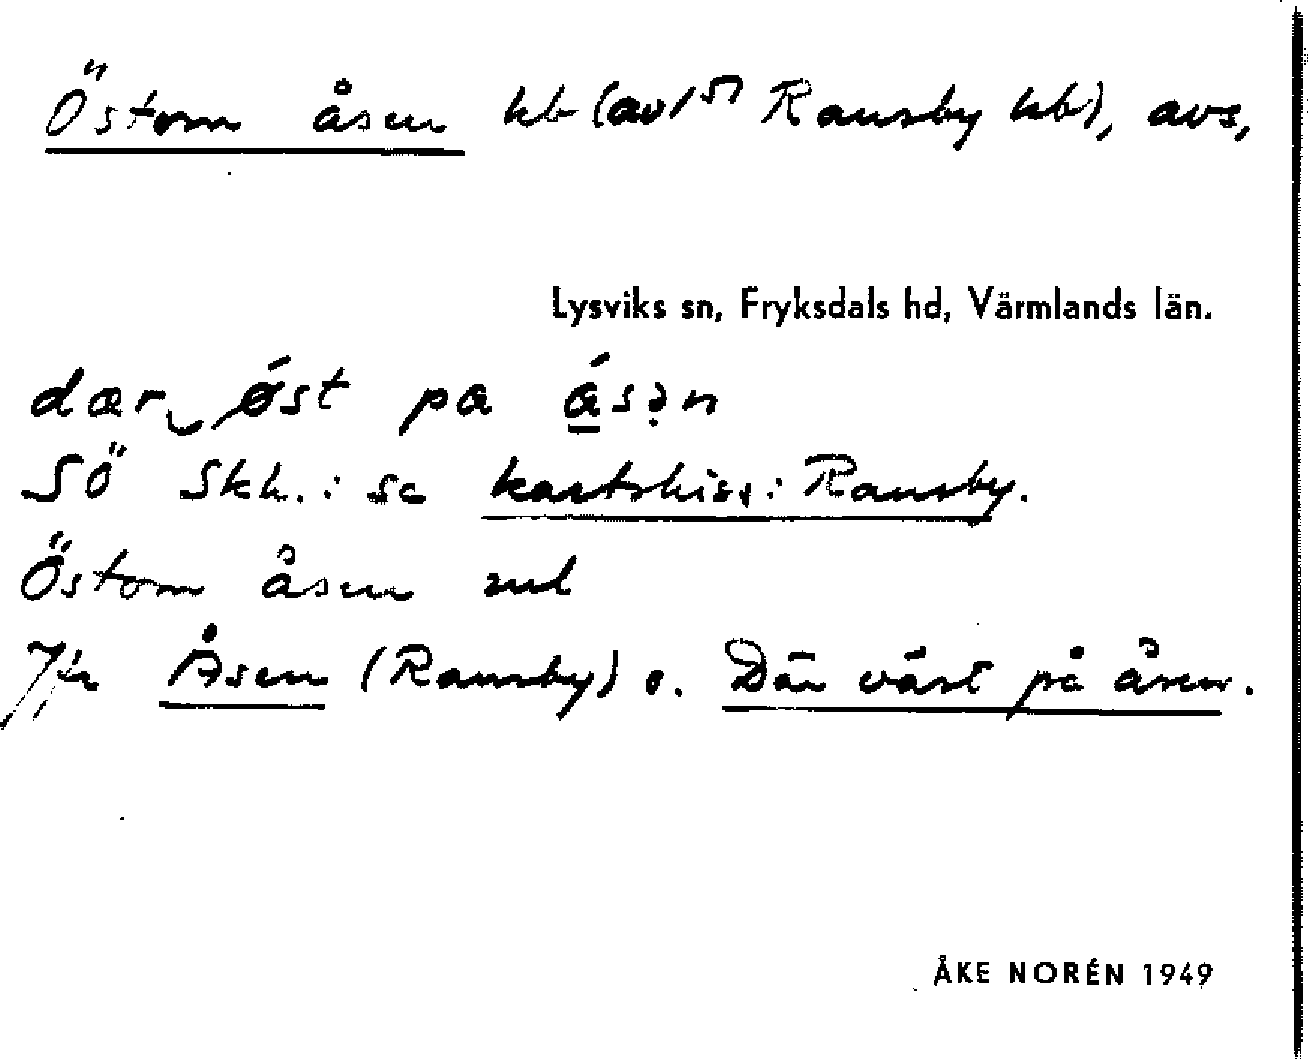 Östom åsen hb (av 1⁵⁷ Ransby hb), avs,
Lysviks sn, Fryksdals hd, Värmlands län.
dær øst pa ásən
SÖ Skh. : se kartskiss: Ransby.
Östom åsen
Jfr Åsen (Ransby) o. Där väst på åsen.
ÅKE NORÉN 1949